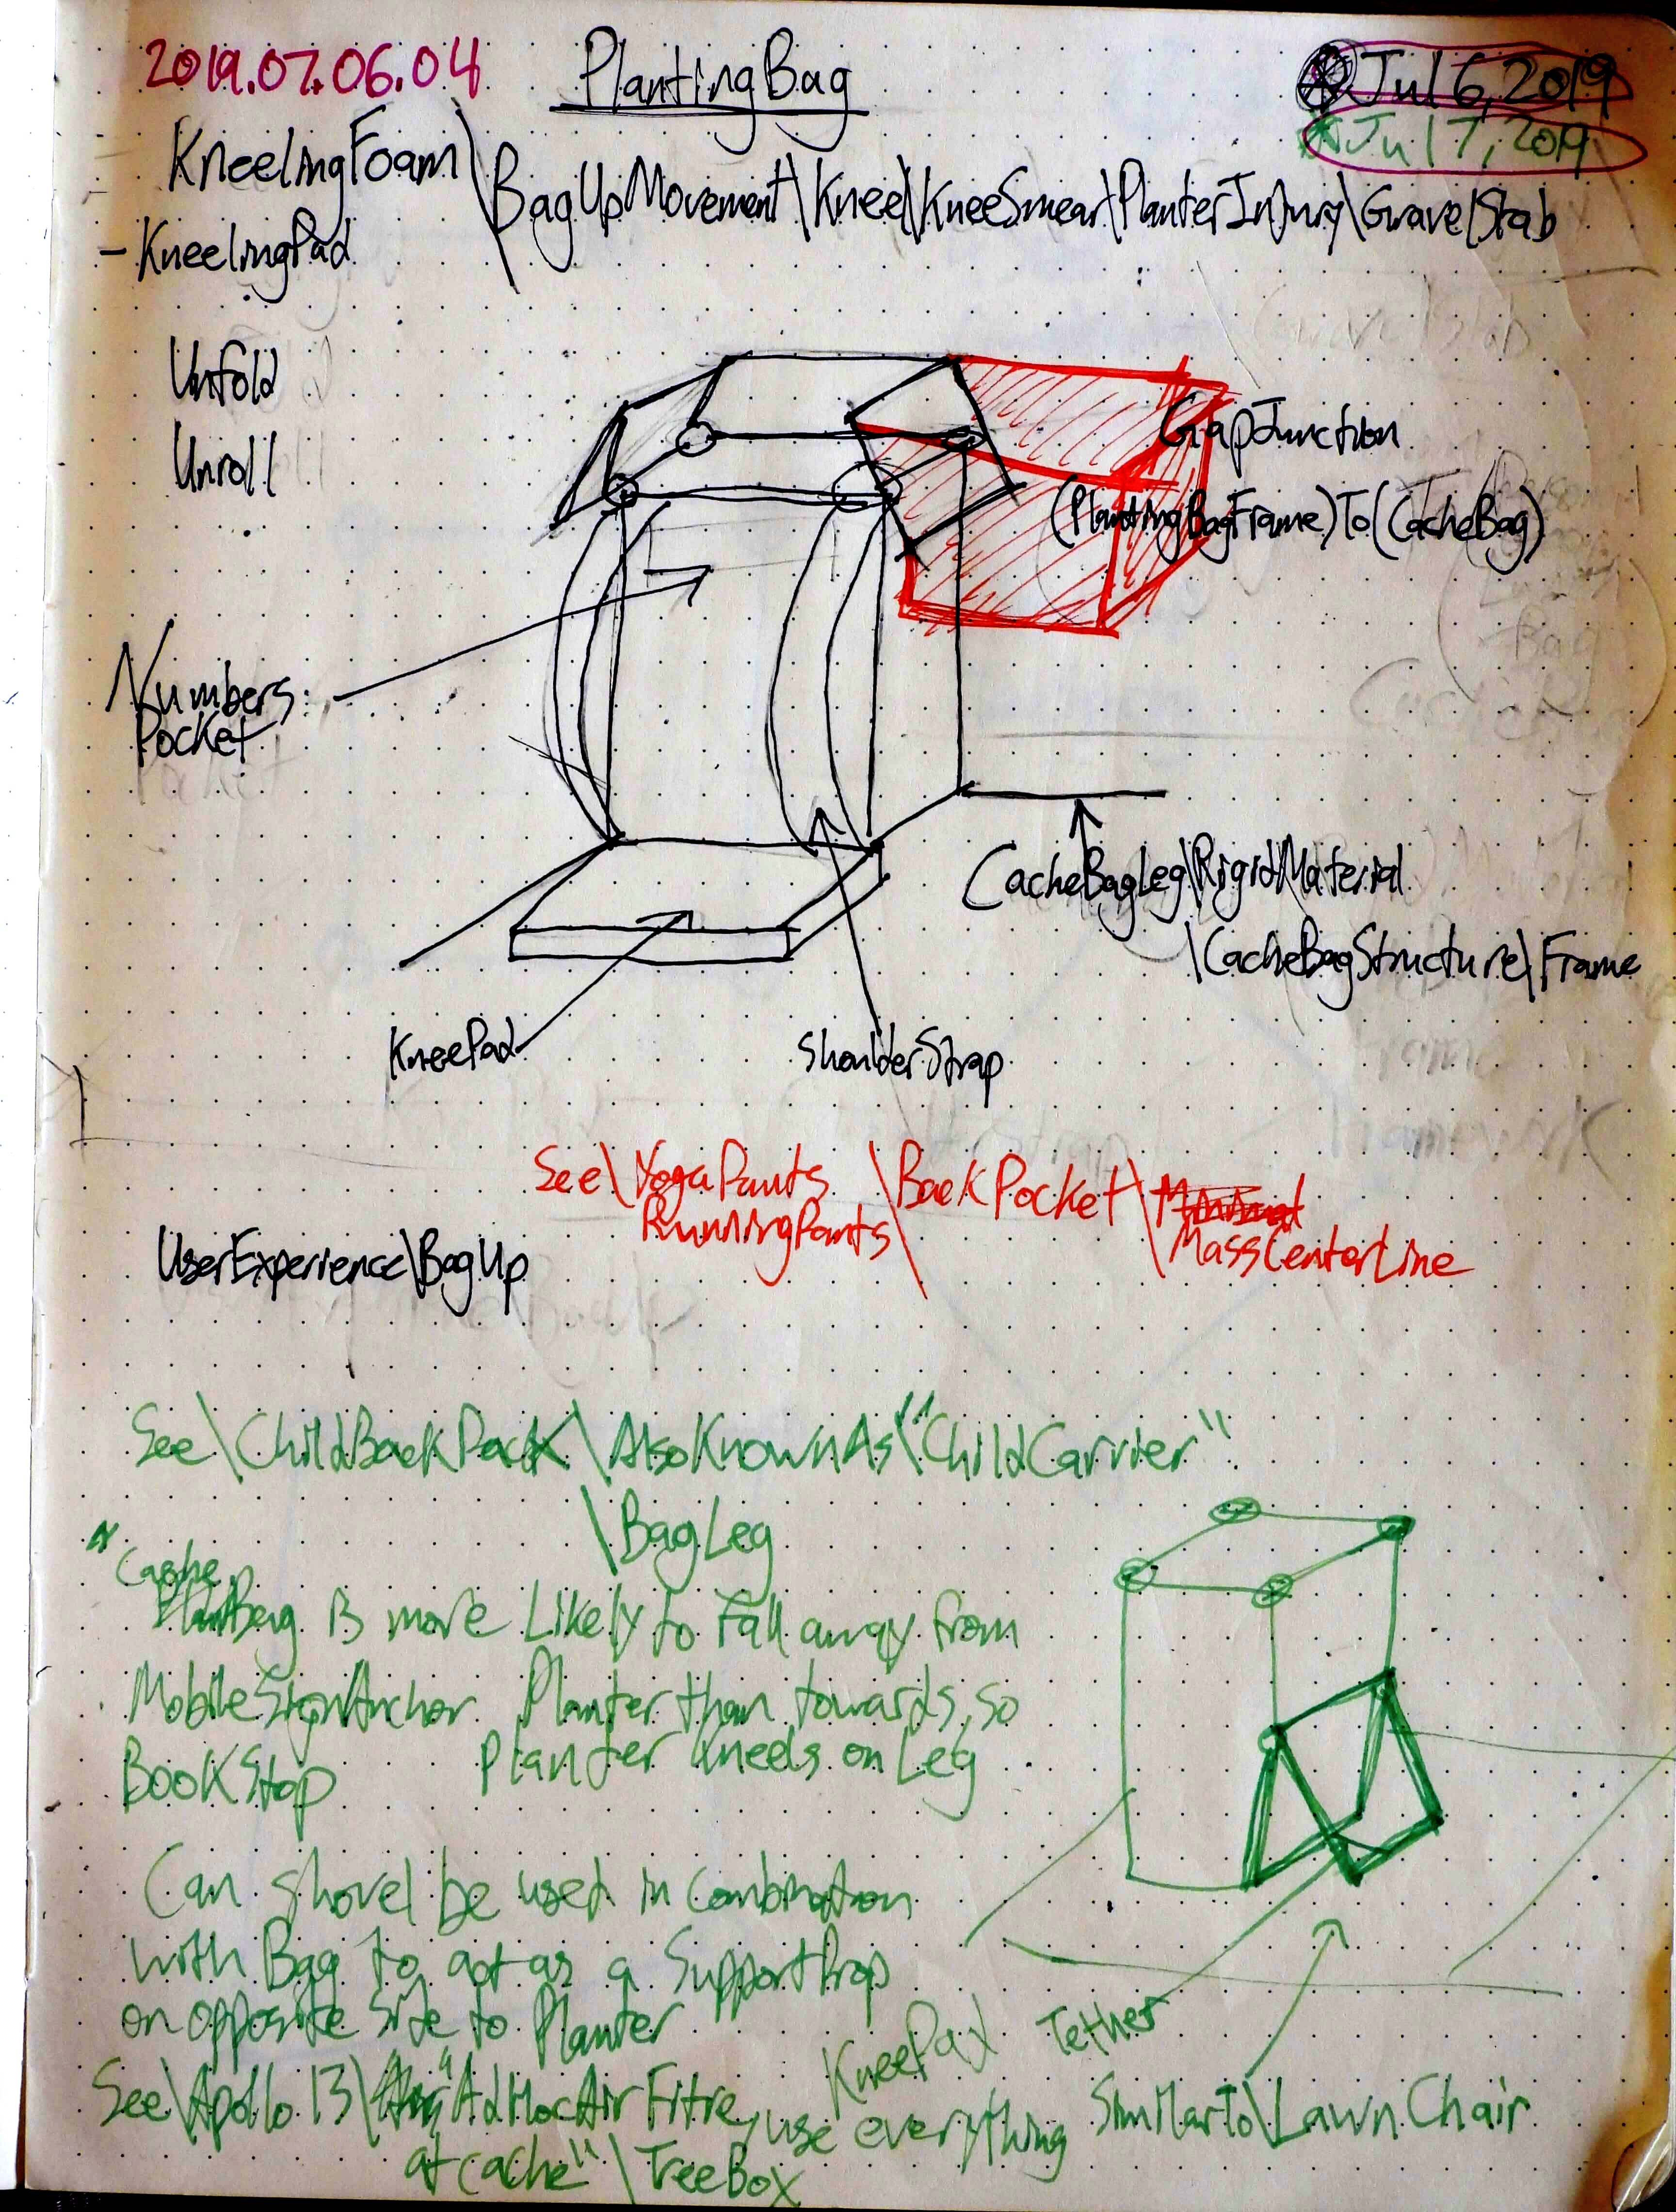 2019.07.06.04
PlantingBag
Jul 6, 2019
Jul 7, 2019
KneelingFoam\BagUpMovement\Kneel\KneeSmear\PlanterInjury\GravelStab
- KneelingPad
Unfold
Unroll
GapJunction
(PlantingBagFrame)To(CacheBag)
Numbers
Pocket
CacheBagLeg\RigidMaterial
\CacheBagStructure\Frame
KneePad
ShoulderStrap
See\YogaPants \BackPocket\
RunningPants MassCenterLine
UserExperience\BagUp
See\ChildBackPack\AlsoKnownAs\"ChildCarrier"
\BagLeg
Cache
Bag is more Likely to Fall away from
MobileSignAnchor Planter than towards, so
BookStop Planter kneels on Leg
Can shovel be used in combination
with Bag to act as a SupportProp
on opposite side to Planter
KneePad Tether
See\Apollo 13\"AdHocAirFiltre, use everything
at cache"\TreeBox
SimilarTo\LawnChair